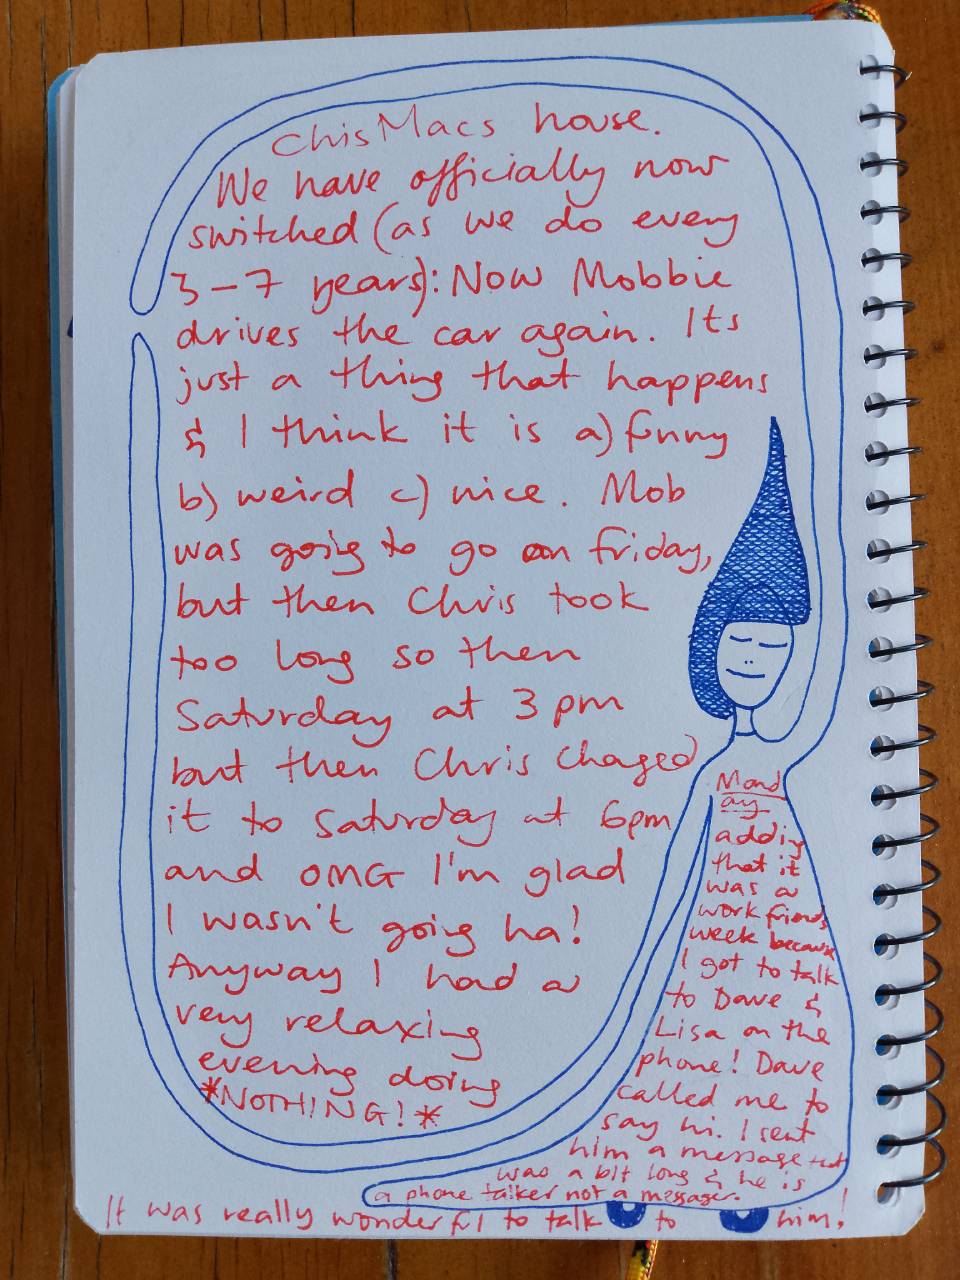 Chis Macs house.
We have officially now
switched (as we do every
3-7 years): Now Mobbie
drives the car again. Its
just a thing that happens
& I think it is a) funny
b) weird c) nice. Mob
was going to go on friday,
but then Chris took
too long so then
Saturday at 3pm
but then Chris chaged
it to Saturday at 6pm
and OMG I'm glad
I wasn't going ha!
Anyway I had a
very relaxing
evening doing
*NOTHING!*
Mond
ay
adding
that it
was a
work friends
week because
I got to talk
to Dave &
Lisa on the
phone! Dave
called me to
say hi. I sent
him a message that
was a bit long & he is
a phone talker not a messager.
It was really wonderful to talk to him!